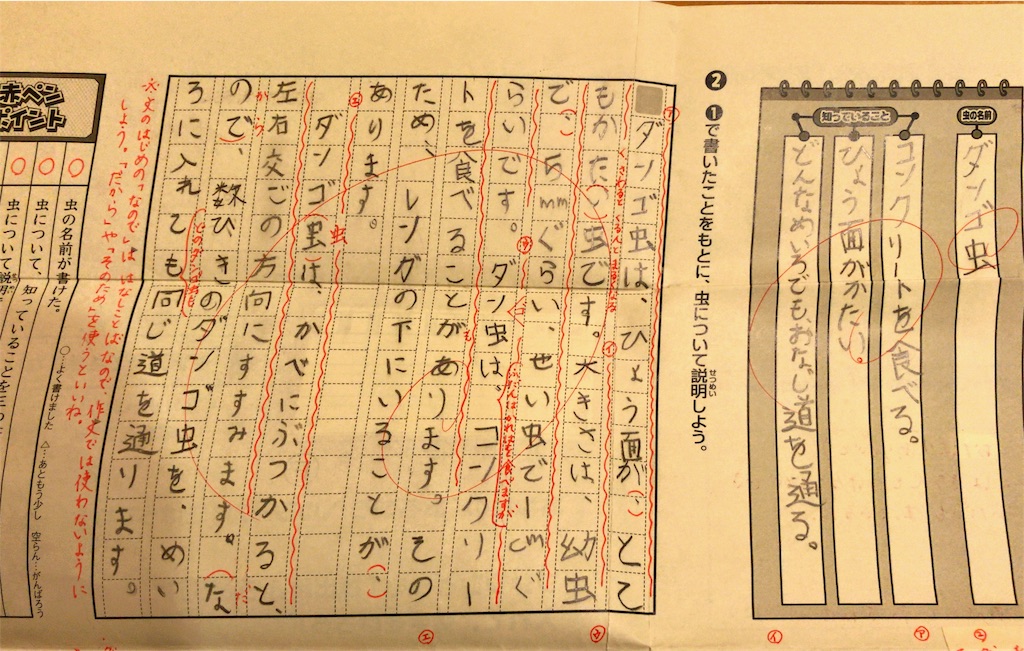 虫の名前
ダンゴ虫
知っていること
コンクリートを食べる。
ひょう面がかたい。
どんなめいろでも、おなじ道を通る。
❷ ❶で書いたことをもとに、虫について説明しよう。
せつめい
ダンゴ虫は、ひょう面が、とて
もかたい虫です。大きさは、幼虫
で、5mmぐらい、せい虫で1cmぐ
らいです。ダン虫は、コンクリー
ゴ
ふだんはかれはを食べますが
トを食べることがあります。その
も
ため、レンガの下にいることが、
あります。
ダンゴ虫は、かべにぶつかると、
虫
左右交ごの方向にすすみます。な
だ
ので、数ひきのダンゴ虫を、めい
から
ろに入れても同じ道を通ります。
※文のはじめの「なので」は はなしことばなので、作文では使わないように
しよう。「だから」や「そのため」を使うといいね。
赤ペン
ポイント
○…よく書けました △…あともう少し 空らん…がんばろう
虫の名前が書けた。
虫について、知っていることを三つ
虫について説明